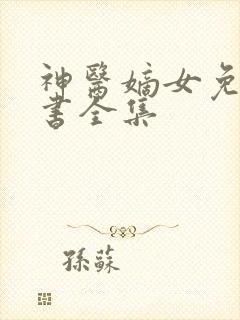 神醫嫡女免
書全集
孫蘇